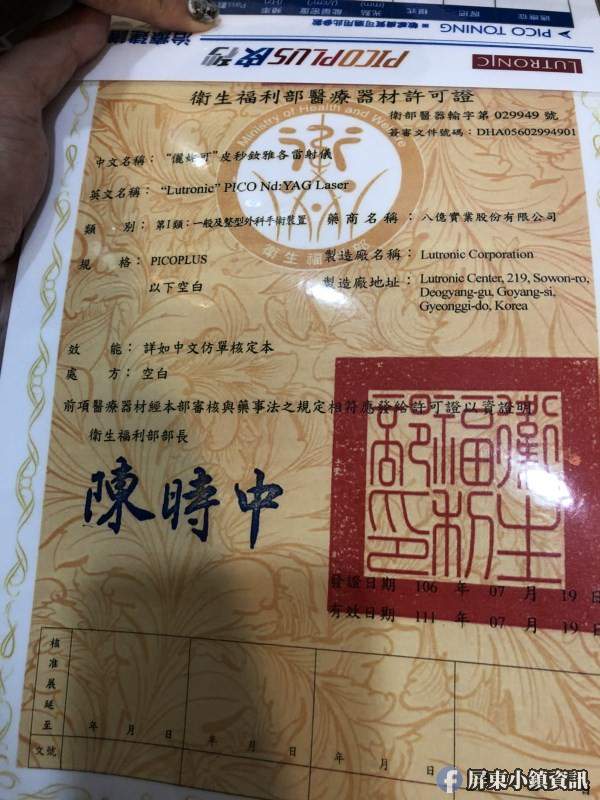 PICO TONING
PICOPLUS皮秒
LUTRONIC
衛生福利部醫療器材許可證
衛部醫器輸字第 029949 號
簽審文件號碼：DHA05602994901
Ministry of Health and Welfare
中文名稱：“儷妮可”皮秒釹雅各雷射儀
英文名稱：“Lutronic” PICO Nd:YAG Laser
類 別：第I類：一般及整型外科手術裝置 藥商名稱：八億實業股份有限公司
規 格：PICOPLUS 製造廠名稱：Lutronic Corporation
以下空白 製造廠地址：Lutronic Center, 219, Sowon-ro,
Deogyang-gu, Goyang-si,
Gyeonggi-do, Korea
效 能：詳如中文仿單核定本
處 方：空白
前項醫療器材經本部審核與藥事法之規定相符應發給許可證以資證明
衛生福利部部長
陳時中
衛生福利部印
發證日期 106 年 07 月 19 日
有效日期 111 年 07 月 19 日
核准展延至
年 月 日 年 月 日 年 月 日 年 月 日
文號
屏東小鎮資訊